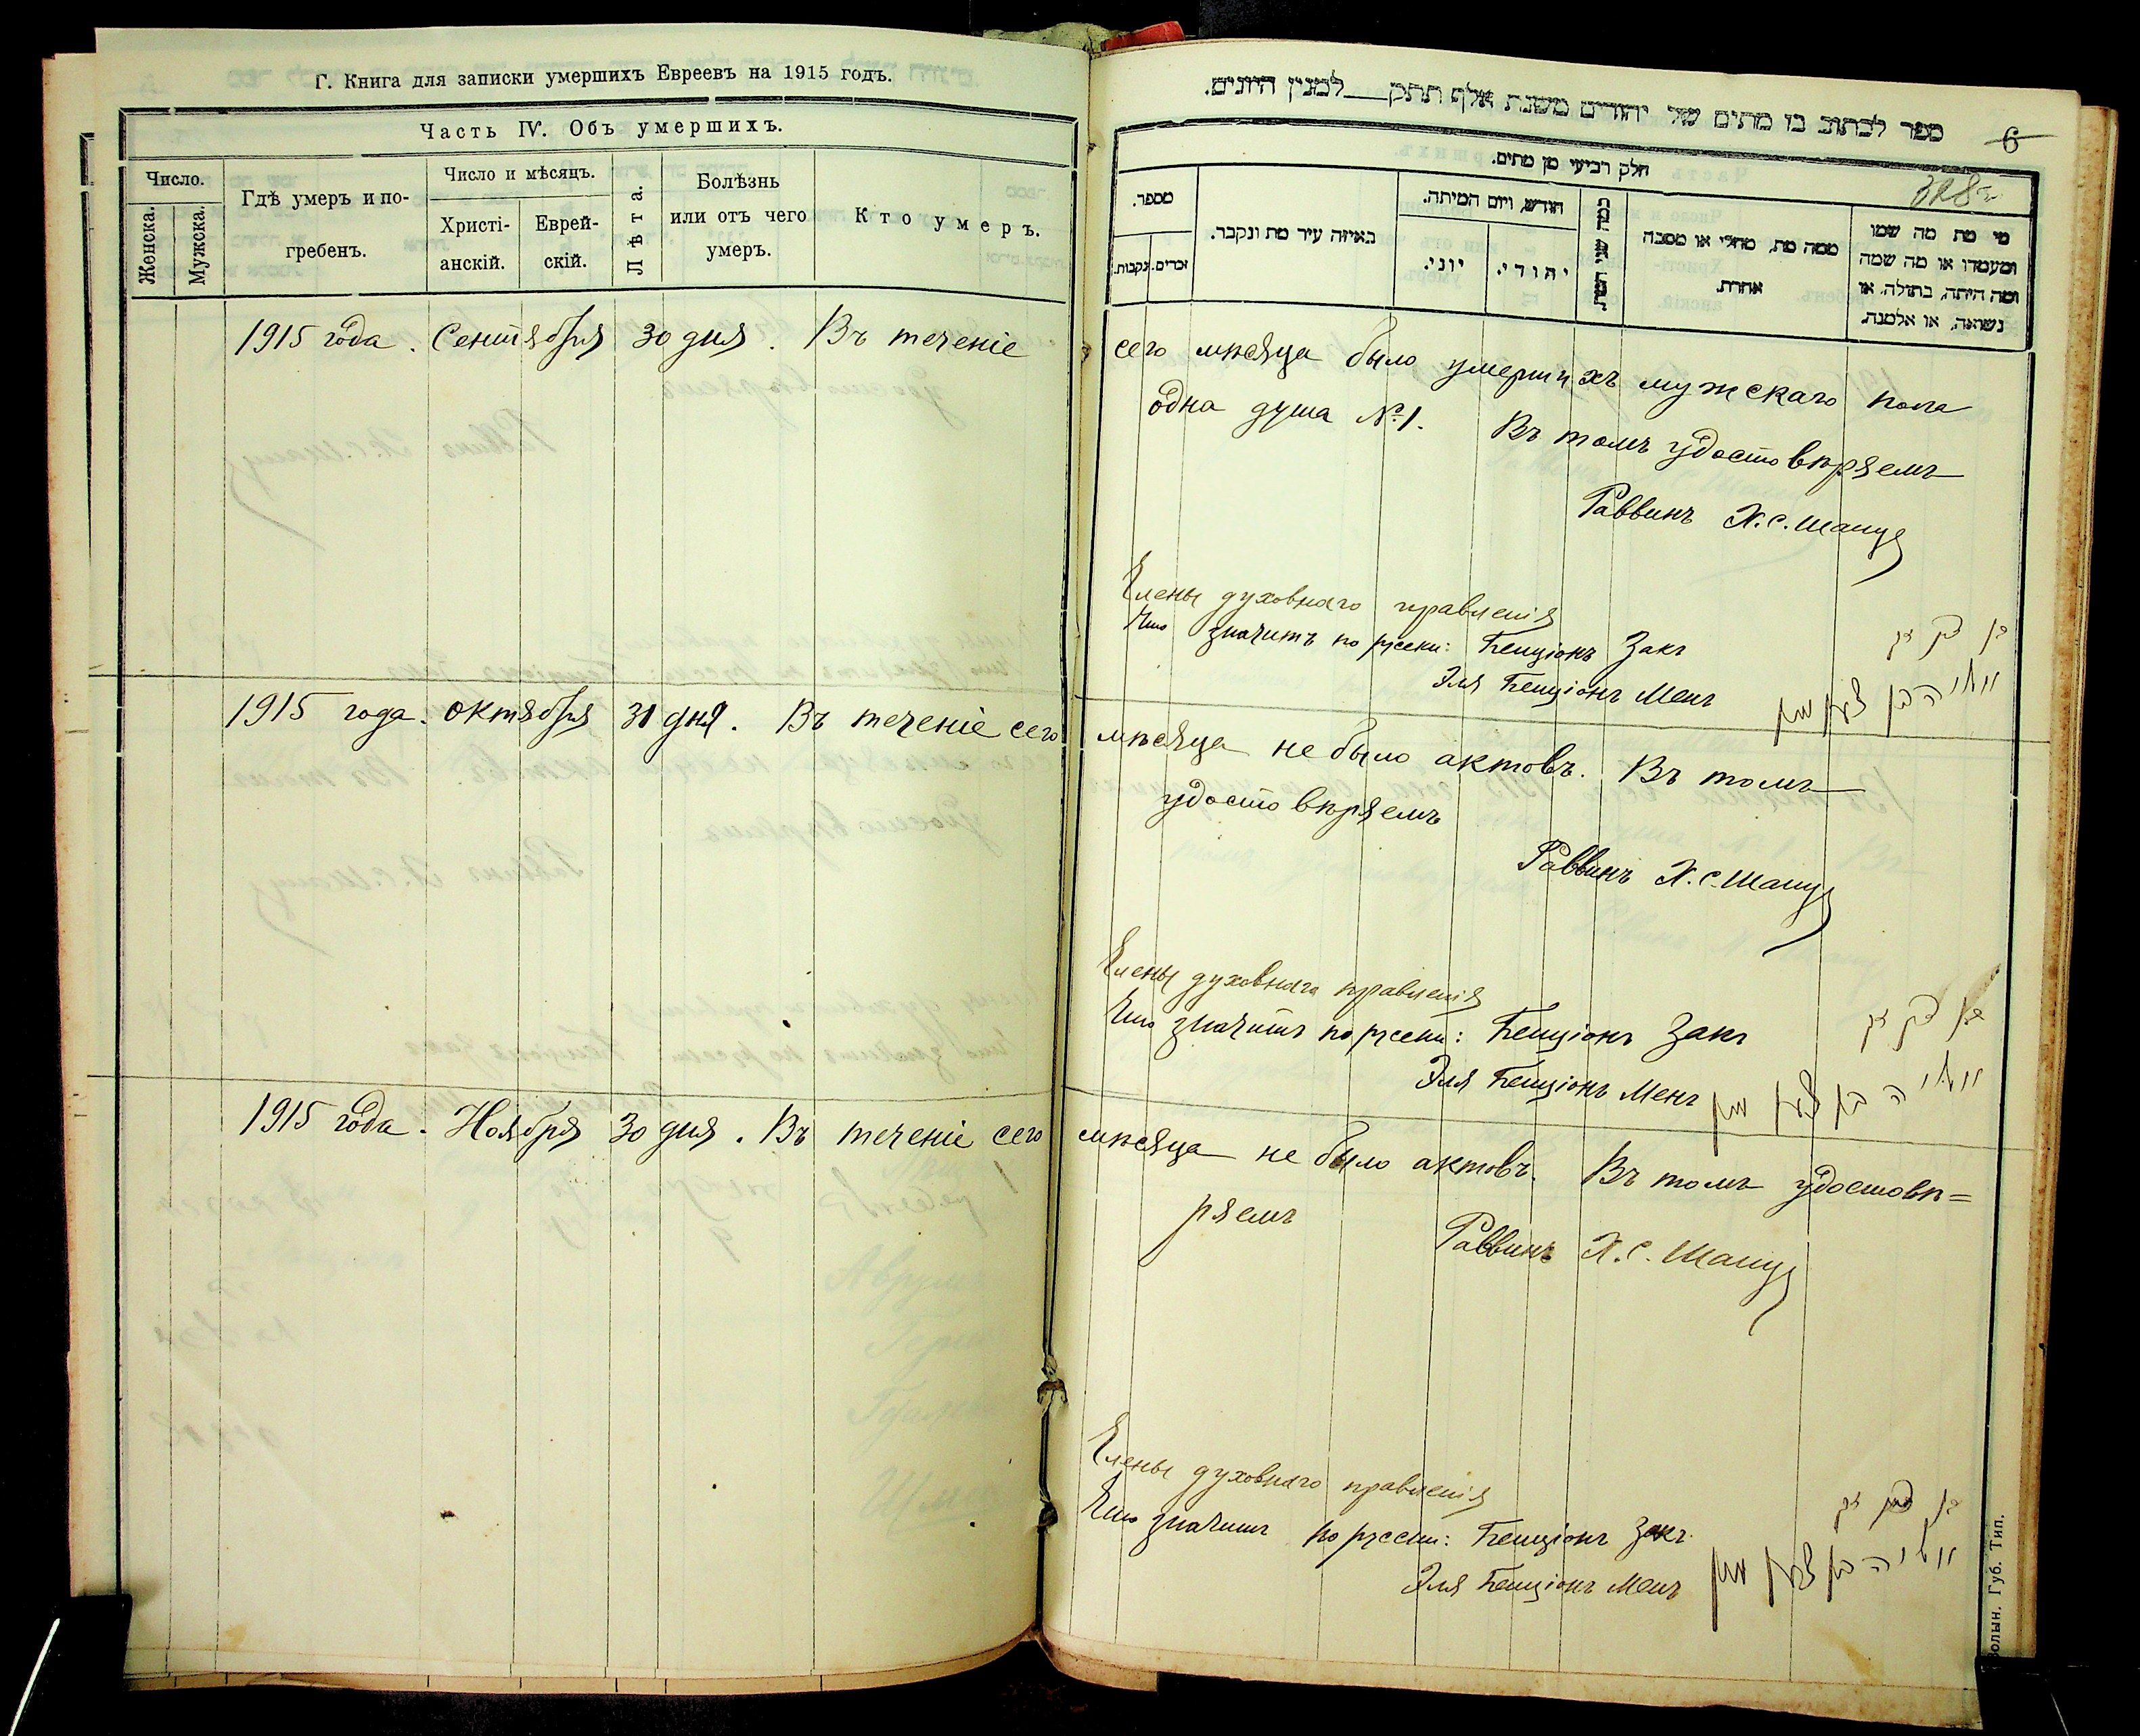 Г. Книга для записки умершихъ Евреевъ на 1915 годъ.
Часть IV. Объ умершихъ.
Число.
Женска.
Мужска.
Гдѣ умеръ и по-
гребенъ.
Число и мѣсяцъ.
Христі-
анскій.
Еврей-
скій.
Лѣта.
Болѣзнь
или отъ чего
умеръ.
Кто умеръ.
ספר לכתוב בו מתים של יהודים משנת אלף תתק___למנין היונים.
6
328
חלק רביעי מן מתים.
מספר.
זכרים.
נקבות.
באיזה עיר מת ונקבר.
חודש, ויום המיתה.
יוני.
יהודי.
כמה שני המת.
ממה מת, מחלי או מסבה
אחרת.
מי מת מה שמו
ומעמדו או מה שמה
ומה היתה, בתולה, או
נשואה, או אלמנה.
1915 года. Сентября 30 дня. Въ теченіе сего мѣсяца было умершихъ мужскаго пола
одна душа №1. Въ томъ удостовѣряемъ
Раввинъ Х. С. Шапир
Члены духовнаго правленія
Что значитъ по русски: Бенціонъ Закъ
בן ציון זק
Эля Бенціонъ Менъ
1915 года. Октября 31 дня. Въ теченіе сего мѣсяца не было актовъ. Въ томъ
удостовѣряемъ
Раввинъ Х. С. Шапир
Члены духовнаго правленія
Что значитъ по русски: Бенціонъ Закъ
בן ציון זק
Эля Бенціонъ Менъ
1915 года. Ноября 30 дня. Въ теченіе сего мѣсяца не было актовъ. Въ томъ удостовѣ=
ряемъ
Раввинъ Х. С. Шапир
Члены духовнаго правленія
Что значитъ по русски: Бенціонъ Закъ.
בן ציון זק
Эля Бенціонъ Менъ
Волын. Губ. Тип.